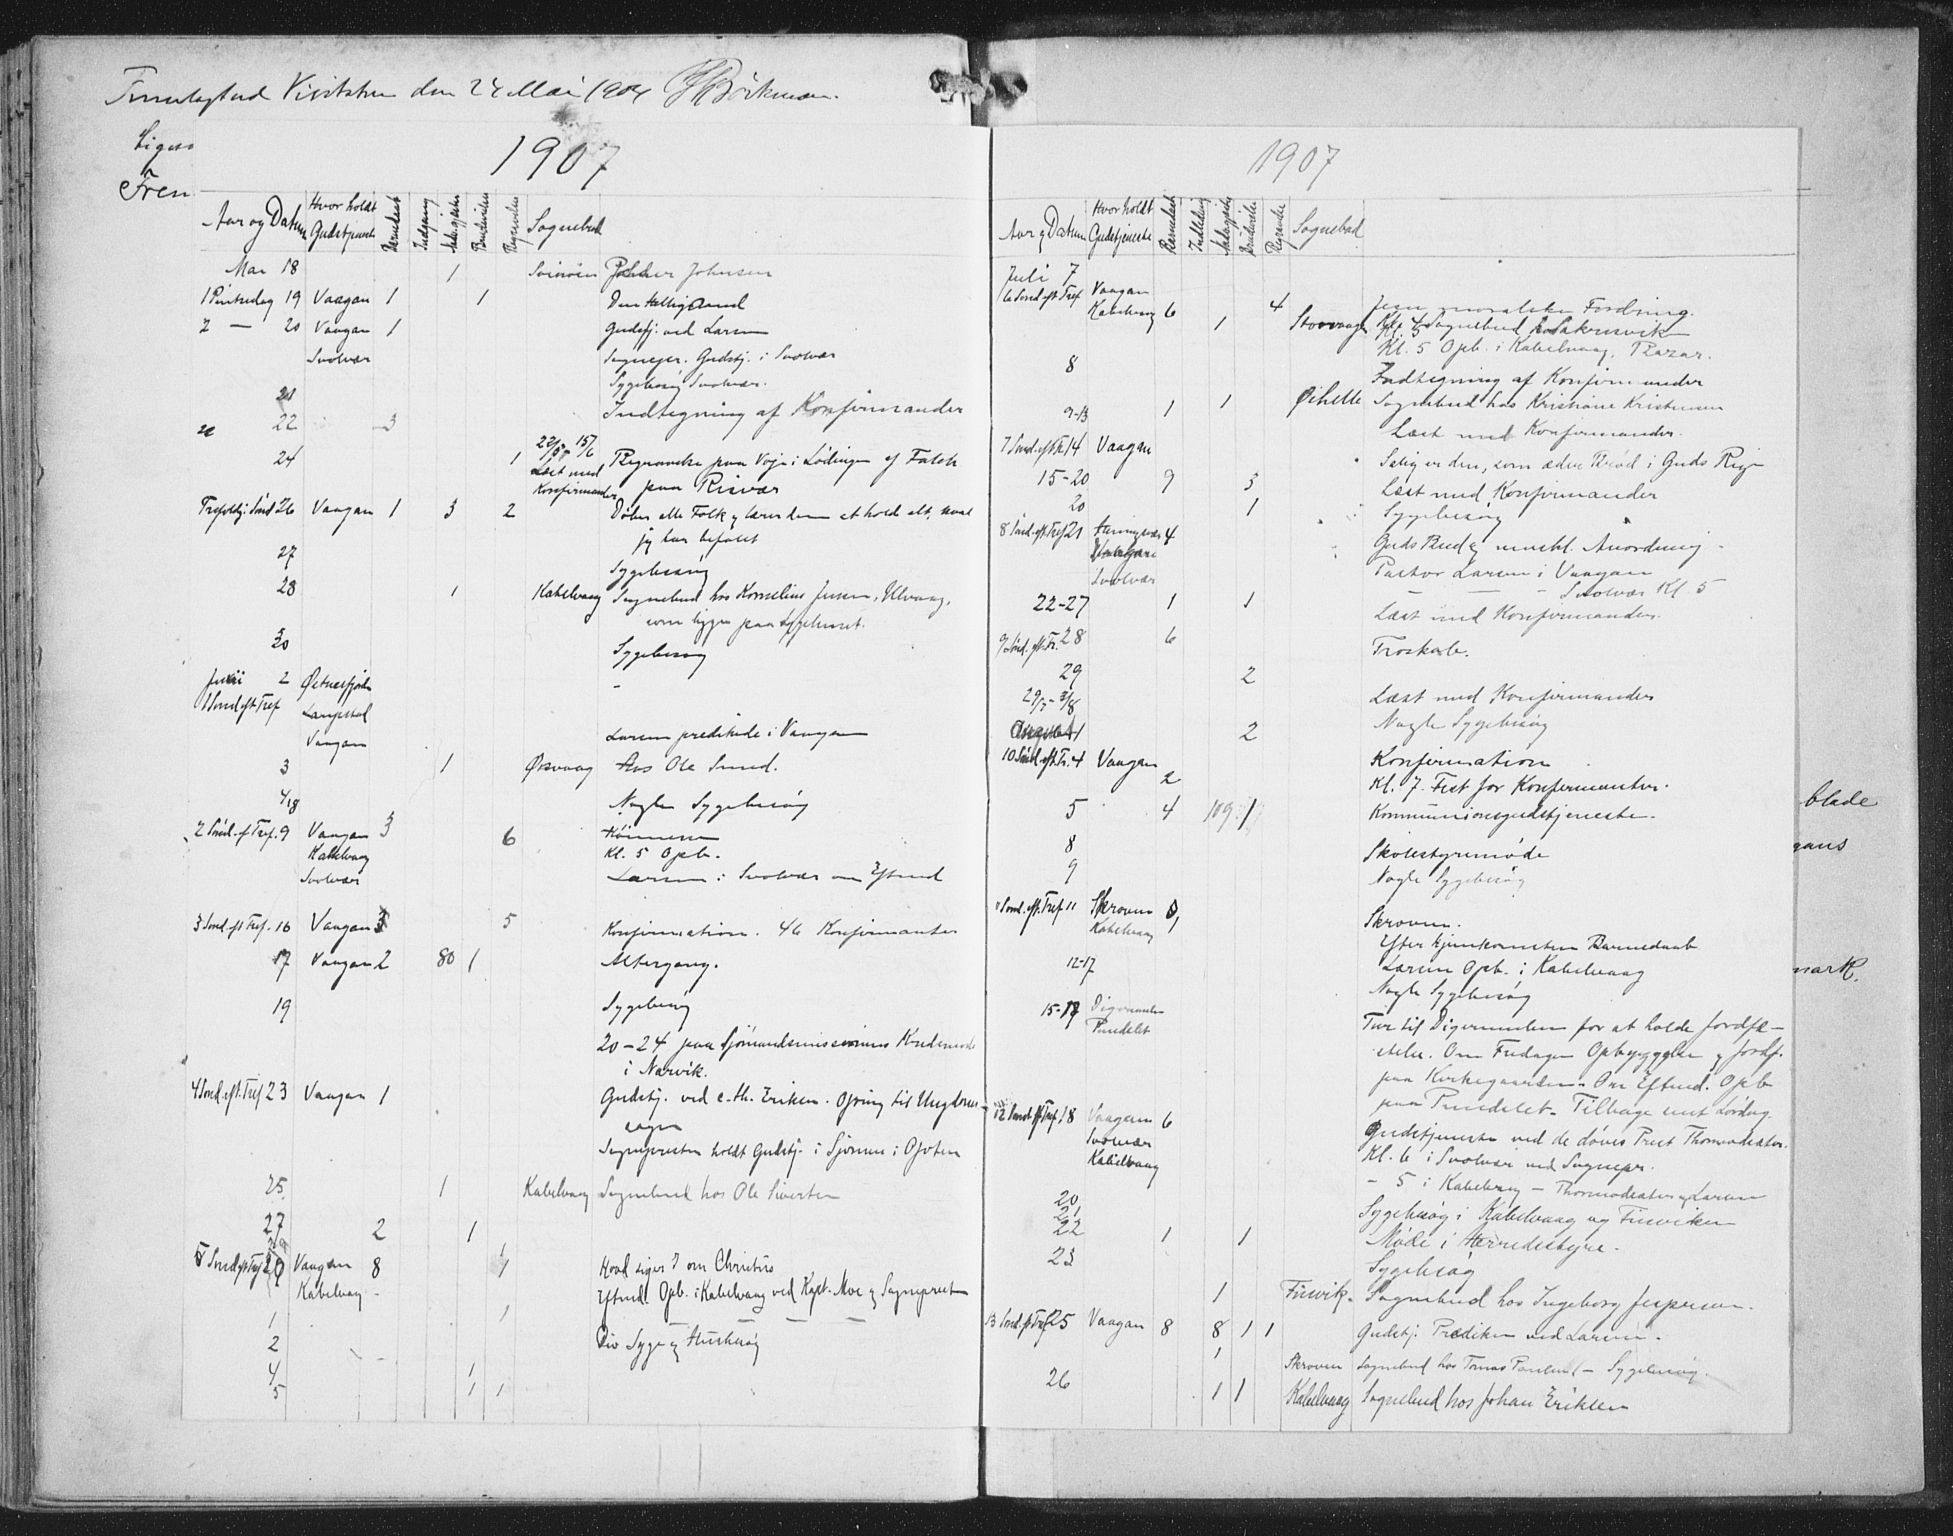 Visitatsen den 24 Mai 1904 Böckman.
Ligesa
Frem
1907
Aar og Datum Hvor holdt Gudstjeneste Barnedaab Indgang Altergjæster Brudevielse Begravelse Sognebud
Mai 18 1 Svinøen Johnsen
1 Pintsedag 19 Vaagan 1 1 Den Helligaand
2 — 20 Vaagan 1 Gudstj. ved Larsen
Svolvær Sognepr. Gudstj. i Svolvær
Sygebesøg Svolvær.
21 Indtegning af Konfirmander
22 3
22/5, 15/6
24 1 Læst med Begravelse paa Veje i Lødingen af Falch
Konfirmander paa Risvær
Trefoldj. Sønd 26 Vaagan 1 3 2 Døber alle Folk og lærer dem at holde alt, hvad
jeg har befalet
27 Sygebesøg
28 1 Kabelvaag Sognebud hos Kornelius Jensen, Ulvaag,
som ligger paa Sygehuset.
30 Sygebesøg
Juni 2 Østnesfjord -
1 Sønd eft Tref Laupstad
Vaagan Larsen predikede i Vaagan
3 1 Ørsvaag Hos Ole Smed.
4/18 Nogle Sygebesøg
2 Sønd. ef Tref. 9 Vaagan 3 6
Kabelvaag Kl. 5 Opb.
Svolvær Larsen i Svolvær om Eftmd
3 Sønd. eft Tref. 16 Vaagan 3 5 Konfirmation. 46 Konfirmanter
17 Vaagan 2 80 1 Altergang.
19 Sygebesøg
20-24 paa Sjømandsmissionens Kredsmøde
i Narvik.
4 Sønd. eft. Tref 23 Vaagan 1 Gudstj. ved c. th. Eriksen. Ofring til Ungdoms-
sagen
Sognepresten holdt Gudstj. i Sjømen i Ofoten
25 1 Kabelvaag Sognebud hos Ole Sivertsen
27 2 1
5 Sønd eft Tref 30 Vaagan 8 1 Hvad siger I om Christus
Kabelvaag - Eftmd. Opb. i Kabelvaag ved Kapt. Moe og Sognprest
1 1 — — — —
2 Div Syge og Husbesøg
4 1
5 1 1
1907
Aar og Datum Hvor holdt Gudstjeneste Barnedaab Indleding Altergjæster Brudevielse Begravelse Sognebud
Juli 7 Vaagan
6 Sønd eft Tref Kabelvaag 6 4 Jesu moralske Fordring.
1 Storvaagan Kl. 4 Sognebud hos Sakrisvik
Kl. 5 Opb. i Kabelvaag. Bazar.
8 Indtegning af Konfirmander
9-13 1 1 Øihelle Sognebud hos Kristiane Kristensen
Læst med Konfirmander.
7 Sønd. eft Tr 14 Vaagan Salig er den, som æder Brød i Guds Rige
15-20 9 3 Læst med Konfirmander
20 1 Sygebesøg
8 Sønd. eft. Tref 21 Henningsvær 4 Guds Bud og menskl. Anordning -
Vaagan Pastor Larsen i Vaagan
Svolvær — — - Svolvær Kl 5
22-27 1 1 Læst med Konfirmander.
9 Sønd. eft. Tr. 28 6 Troskab.
29 2
29/7 - 3/8 Læst med Konfirmander
August 1 2 Nogle Sygebesøg
10 Sønd. eft. Tr. 4 Vaagan 2 Konfirmation
Kl. 7. Fest for Konfirmanter.
5 4 109 1 Kommunionsgudstjeneste.
8 Skolestyremøde
9 Nogle Sygebesøg
11 Sønd. eft. Tref 11 Skroven Skroven.
Kabelvaag 1 Efter Hjemkomsten Barnedaab
Larsen Opb. i Kabelvaag
12-17 Nogle Sygebesøg
15-17 Digermulen Tur til Digermulen for at holde Jordfæ-
Pundslet stelse. Om Fredagen Opbyggelse og Jordf.
paa Kirkegaarden. Om Eftmd. Opb
paa Pundslet. Tilbage mut Lørdag
12 Sønd eft Tref. 18 Vaagan 6 Gudstjeneste ved de døves Prest Thormodsæter.
Svolvær Kl. 6 i Svolvær ved Sognepr.
Kabelvaag - 5 i Kabelvaag - Thormodsæter og Larsen
20
21 Sygebesøg i Kabelvaag og Finviken
22 1 1 Møde i Herredsstyre.
23 Sygebesøg
1 Finvik. Sognebud hos Ingeborg Jespersen.
13 Sønd. eft Tref 25 Vaagan 8 8 1 1 Gudstj. Prediken ved Larsen.
1 Skroven Sognebud hos Tomas - Sygebesøg.
26 1 1 Kabelvaag Sognebud hos Johan Eriksen
blade
gans
mark.